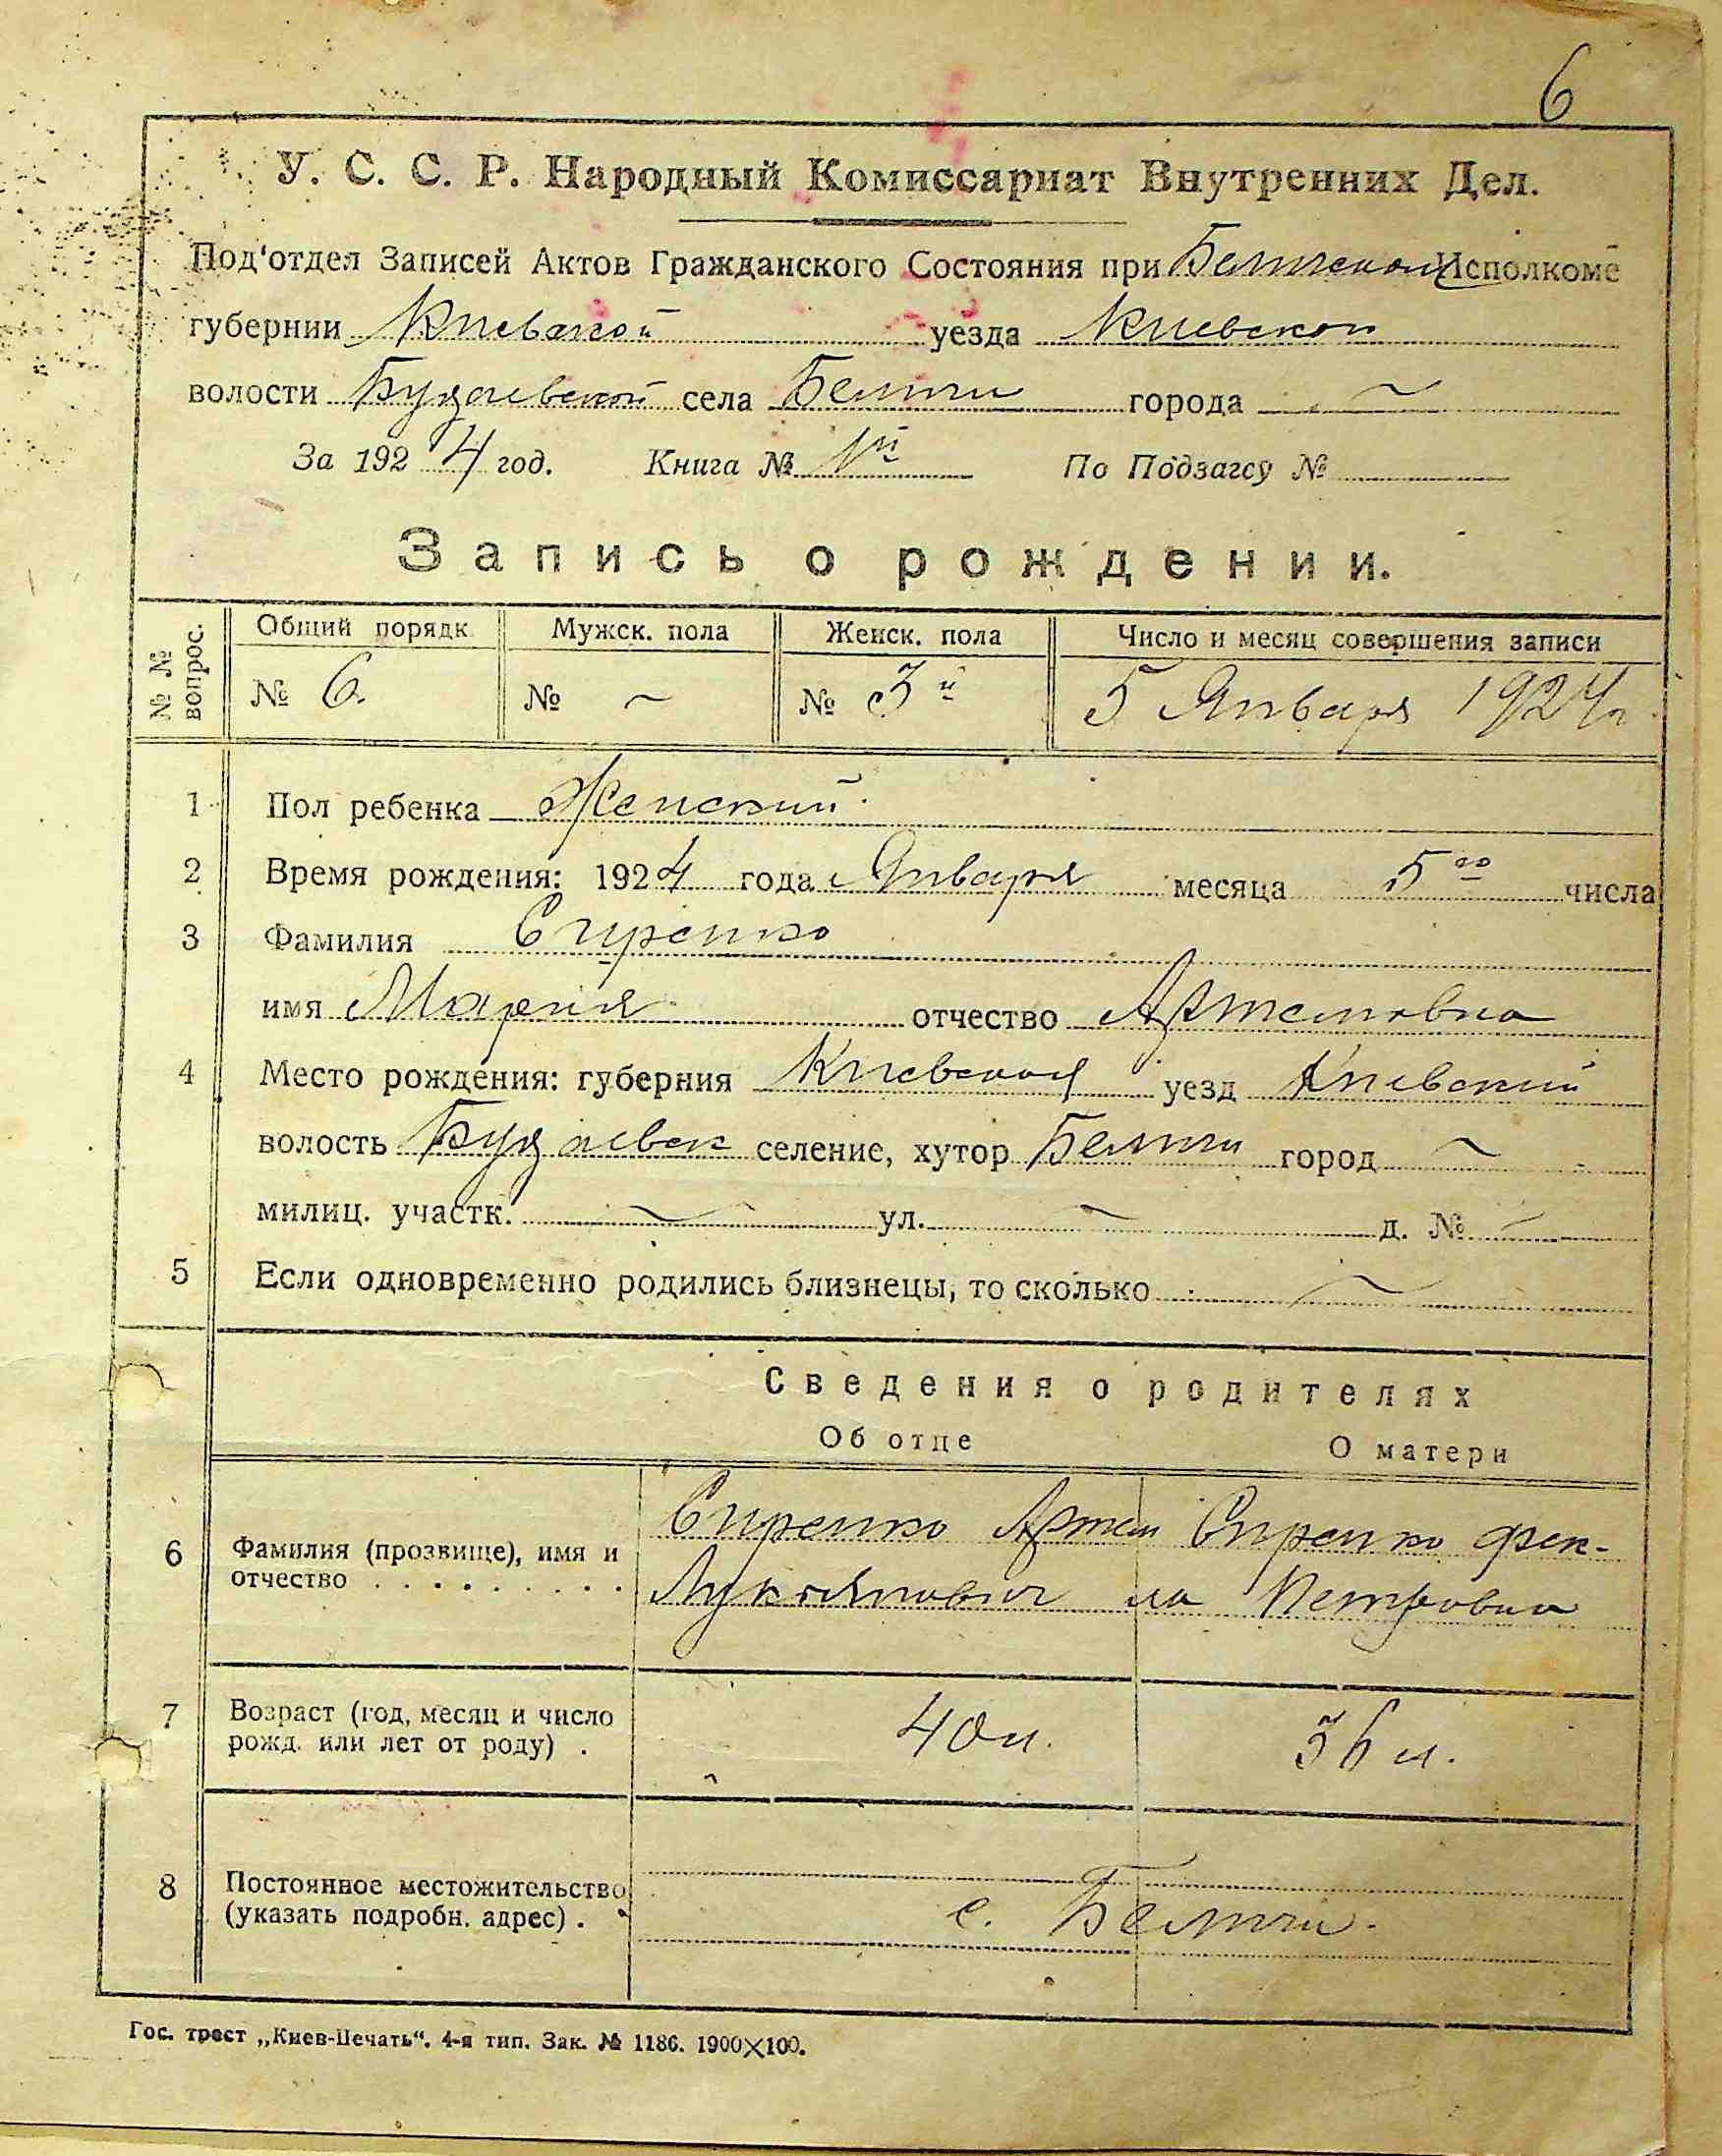 6
У. С. С. Р. Народный Комиссариат Внутренних Дел.
Под'отдел Записей Актов Гражданского Состояния при Исполкоме
губернии Киевской уезда Киевского
волости Будаевской села Белички города ~
За 1924 год. Книга № 1й По Подзагсу №
Запись о рождении.
№ № вопрос.
Общий порядк. Мужск. пола Женск. пола Число и месяц совершения записи
№ 6. № ~ № 3й 5 Января 1924 г.
1 Пол ребенка Женский.
2 Время рождения: 1924 года Января месяца 5го числа
3 Фамилия Сиренко
имя Мария отчество Артемовна
4 Место рождения: губерния Киевская уезд Киевский
волость Будаевск селение, хутор Белички город ~
милиц. участк. ~ ул. ~ д. № ~
5 Если одновременно родились близнецы, то сколько ~
Сведения о родителях
Об отце О матери
6 Фамилия (прозвище), имя и отчество . . . . . . . . .
Сиренко Артем Сиренко Фек-
Лукьянович ла Петровна
7 Возраст (год, месяц и число рожд. или лет от роду) .
40 л. 36 л.
8 Постоянное местожительство (указать подробн. адрес) .
с. Белички.
Гос. трест „Киев-Печать“. 4-я тип. Зак. № 1186. 1900×100.